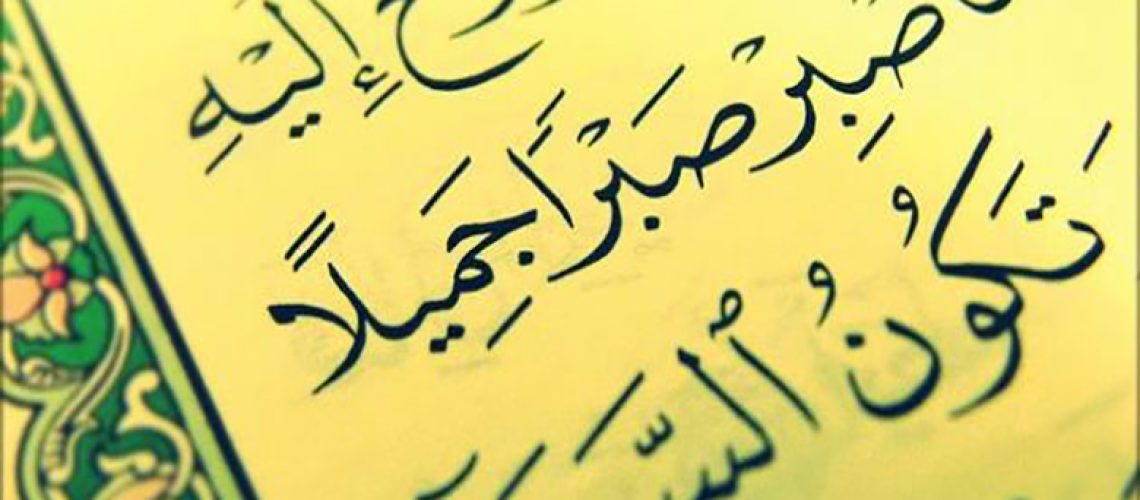 إِلَيْهِ
صْبِرْ صَبْرًا جَمِيلًا
تَكُونُ ٱلسَّ